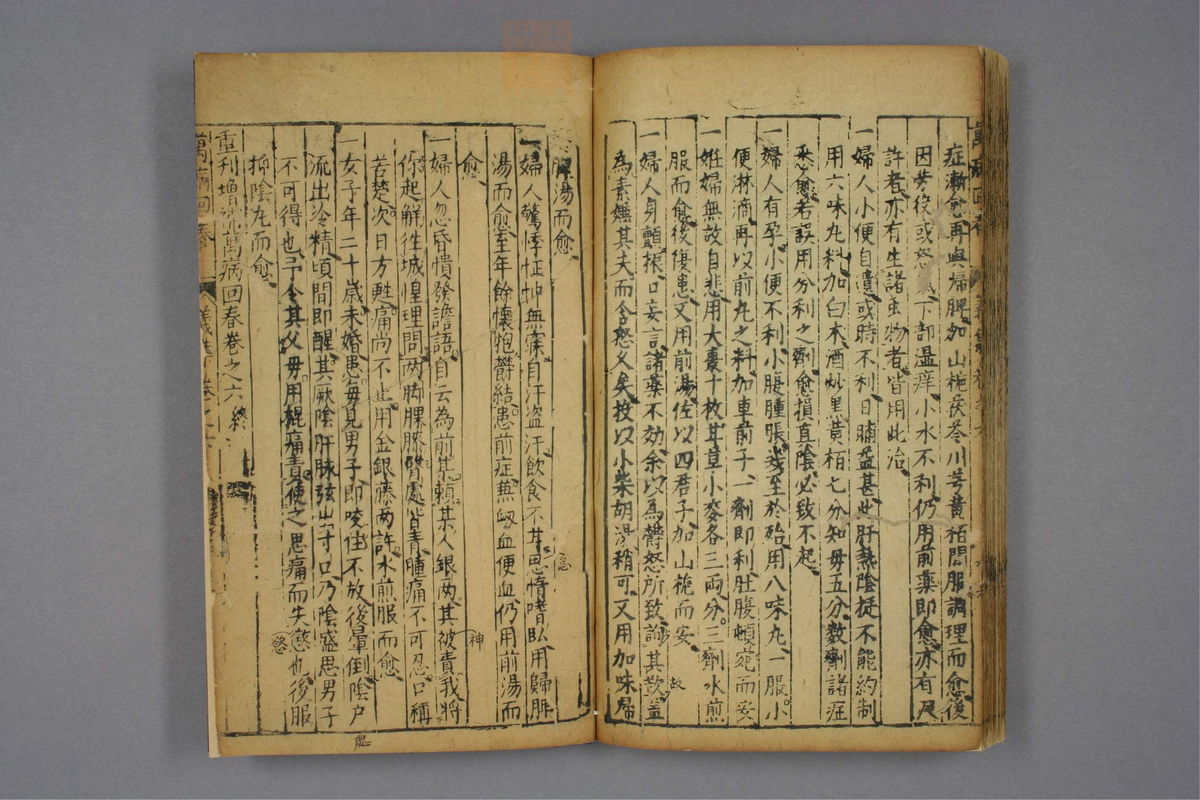 症漸愈再與歸脾加山梔茯苓川芎黃栢間服調理而愈後
因勞役或怒氣下部濕痒小水不利仍用前藥即愈亦有尺
許者亦有生諸虫物者皆用此治
一婦人小便自遺或時不利日晡益甚此肝熱陰挺不能約制
用六味丸料加白朮酒炒黑黃栢七分知毋五分數劑諸症
悉愈若誤用分利之劑愈損真陰必致不起
一婦人有孕小便不利小腹腫脹幾至於殆用八味丸一服小
便淋滴再以前丸之料加車前子一劑即利肚腹頓寬而安
一姙婦無故自悲用大棗十枚甘草小麥各三両分三劑水煎
服而愈後復患又用前湯佐以四君子加山梔而安
一婦人身顫振口妄言諸藥不効余以為欝怒所致詢其故蓋
為素嫌其夫而含怒久矣投以小柴胡湯稍可又用加味歸
脾湯而愈
一婦人驚悸怔忡無寐自汗盗汗飲食不甘思惰嗜臥用歸脾
湯而愈至年餘懷抱欝結患前症兼衂血便血仍用前湯而
愈
一婦人忽昏憒發譫語自云為前某賴某人銀両某被責我將
你起解徃城惶理問两脚踝膝臂處皆青腫痛不可忍口稱
苦楚次日方甦痛尚不止用金銀藤两許水煎服而愈
一女子年二十歲未婚患每見男子即咬住不放後暈倒陰戶
流出冷精頃間即醒其厥陰肝脉弦出寸口乃陰盛思男子
不可得也予令其父毋用棍痛責使之思痛而失慾也後服
抑陰丸而愈
重刋增補萬病回春卷之六終
神
慾
萬病回春